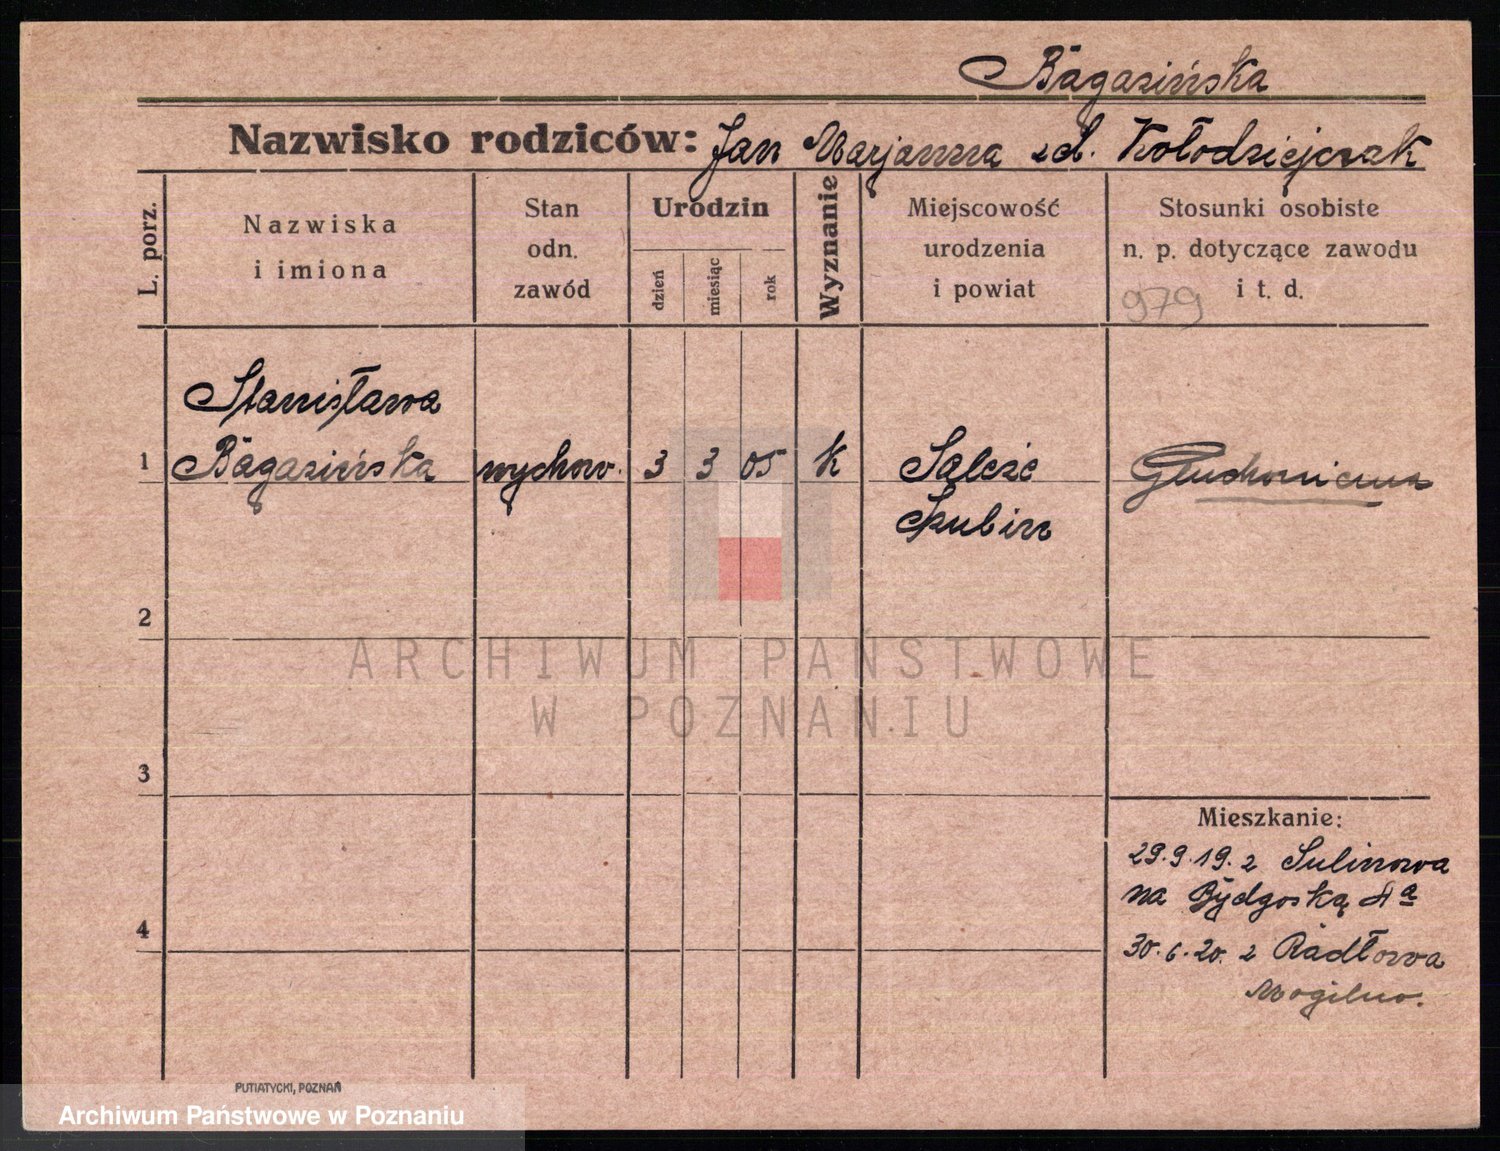 Bagazińska
Nazwisko rodziców: Jan Marjanna zd. Kołodziejczak
L. porz.
Nazwiska
i imiona
Stan
odn.
zawód
Urodzin
dzień
miesiąc
rok
Wyznanie
Miejscowość
urodzenia
i powiat
Stosunki osobiste
n. p. dotyczące zawodu
i t. d.
979
Stanisława
1 Bagazińska wychow. 3 3 05 K Salcze
Szubin
2
3
4
Mieszkanie:
29.9.19. z Sulinowa
na Bydgoską 4a
30.6.20. z Radłowa
Mogilno.
ARCHIWUM PAŃSTWOWE
W POZNANIU
PUTIATYCKI, POZNAŃ
Archiwum Państwowe w Poznaniu